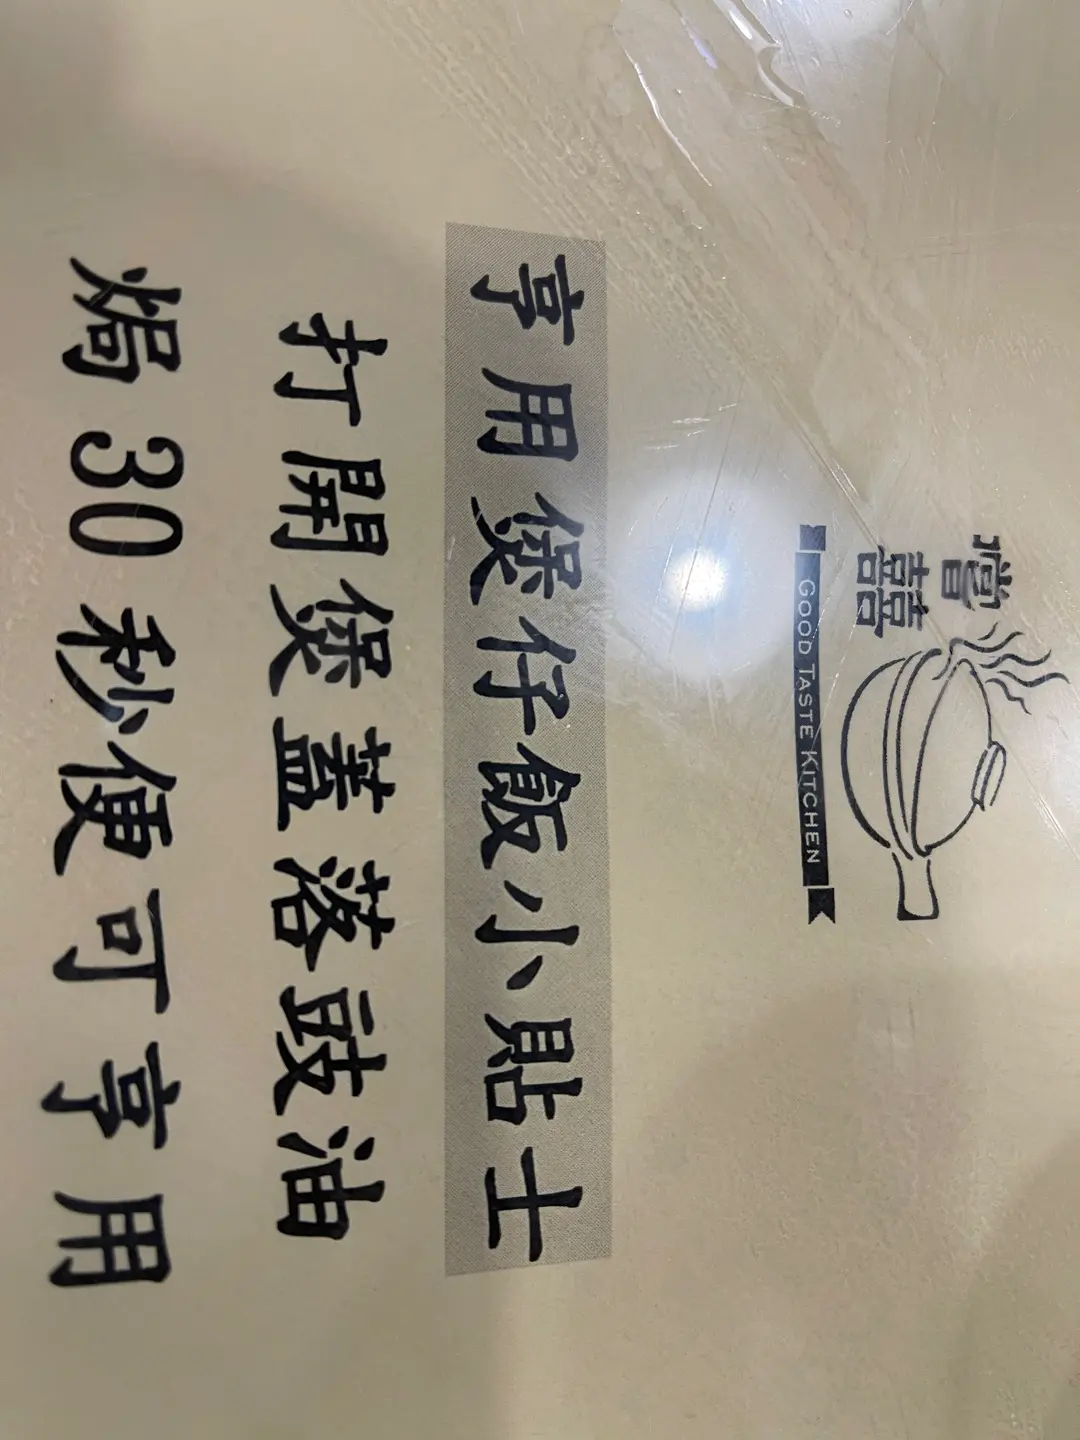 嚐
囍
GOOD TASTE KITCHEN
享用煲仔飯小貼士
打開煲蓋落豉油
焗 30 秒便可享用